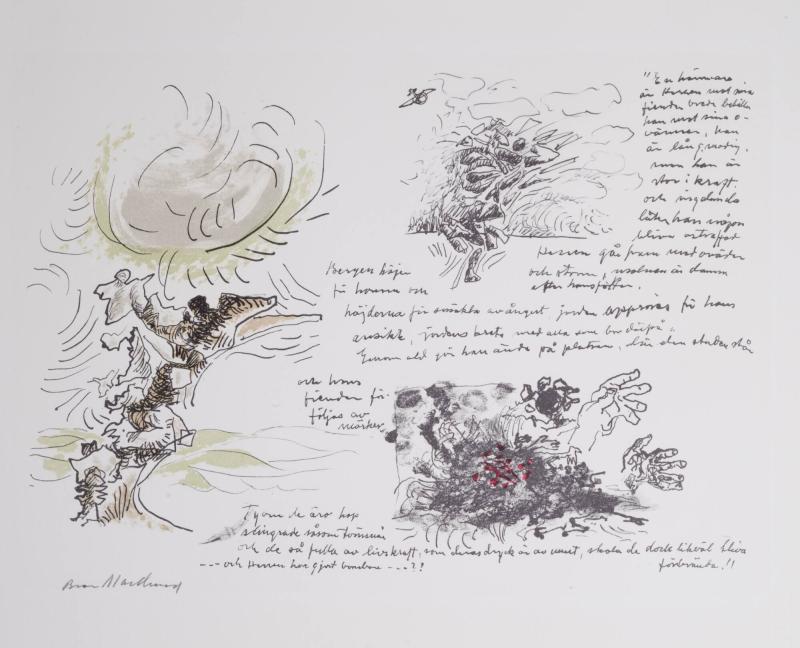 "En hämnare
är Herren mot sina
fiender,
han mot sina o-
vänner, han
är långmodig,
men han är
stor i kraft
och ingalunda
låter han någon
bliva ostraffad
Herren går fram med oväder
och storm, molnen är damm
efter hans fötter.
Bergen bäva
för honom och
höjderna försmälta av ångest, jorden för hans
ansikte, jordens krets med alla som bo därpå.
Genom eld gör han ände på platsen, där den staden står
och hans
fiender för-
följas av
mörker.
Ty om de äro hop-
slingrade såsom törnsnår
och de så fulla av livskraft, som deras dryck är av must, skola de dock likväl bliva
förbrända.!!
--- och Herren har gjort bomben ---??